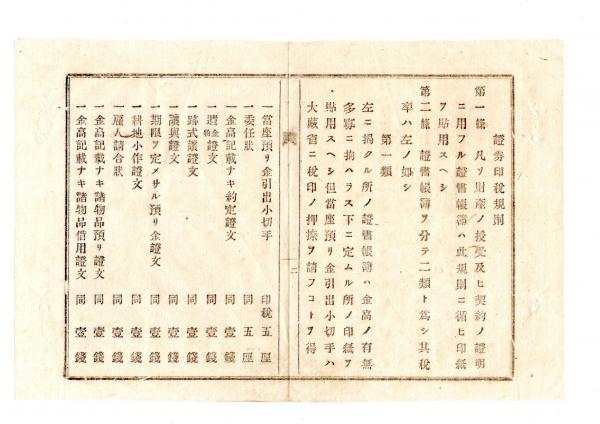 證券印稅規則
第一條 凡ソ財產ノ授受及ヒ契約ノ證明
ニ用フル證書帳簿ハ此規則ニ循ヒ印紙
ヲ貼用スヘシ
第二條 證書帳簿ヲ分テ二類ト爲シ其稅
率ハ左ノ如シ
第一類
左ニ揭クル所ノ證書帳簿ハ金高ノ有無
多寡ニ拘ハラス下ニ定ムル所ノ印紙ヲ
貼用スヘシ但當座預リ金引出小切手ハ
大藏省ニ稅印ノ押捺ヲ請フコトヲ得
二
一當座預リ金引出小切手 印稅五厘
一委任狀 同五厘
一金高記載ナキ約定證文 同壹錢
一遺金物證文 同壹錢
一跡式讓證文 同壹錢
一讓與證文 同壹錢
一期限ヲ定メサル預リ金證文 同壹錢
一耕地小作證文 同壹錢
一雇人請合狀 同壹錢
一金高記載ナキ諸物品預リ證文 同壹錢
一金高記載ナキ諸物品借用證文 同壹錢